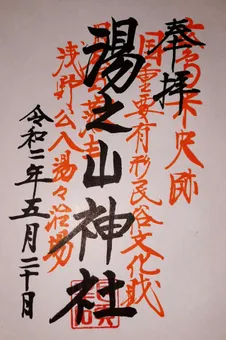 奉拝
跡
国重要有形民俗文化財
湯之山神社
浅野公入湯々治場
令和二年五月二十日